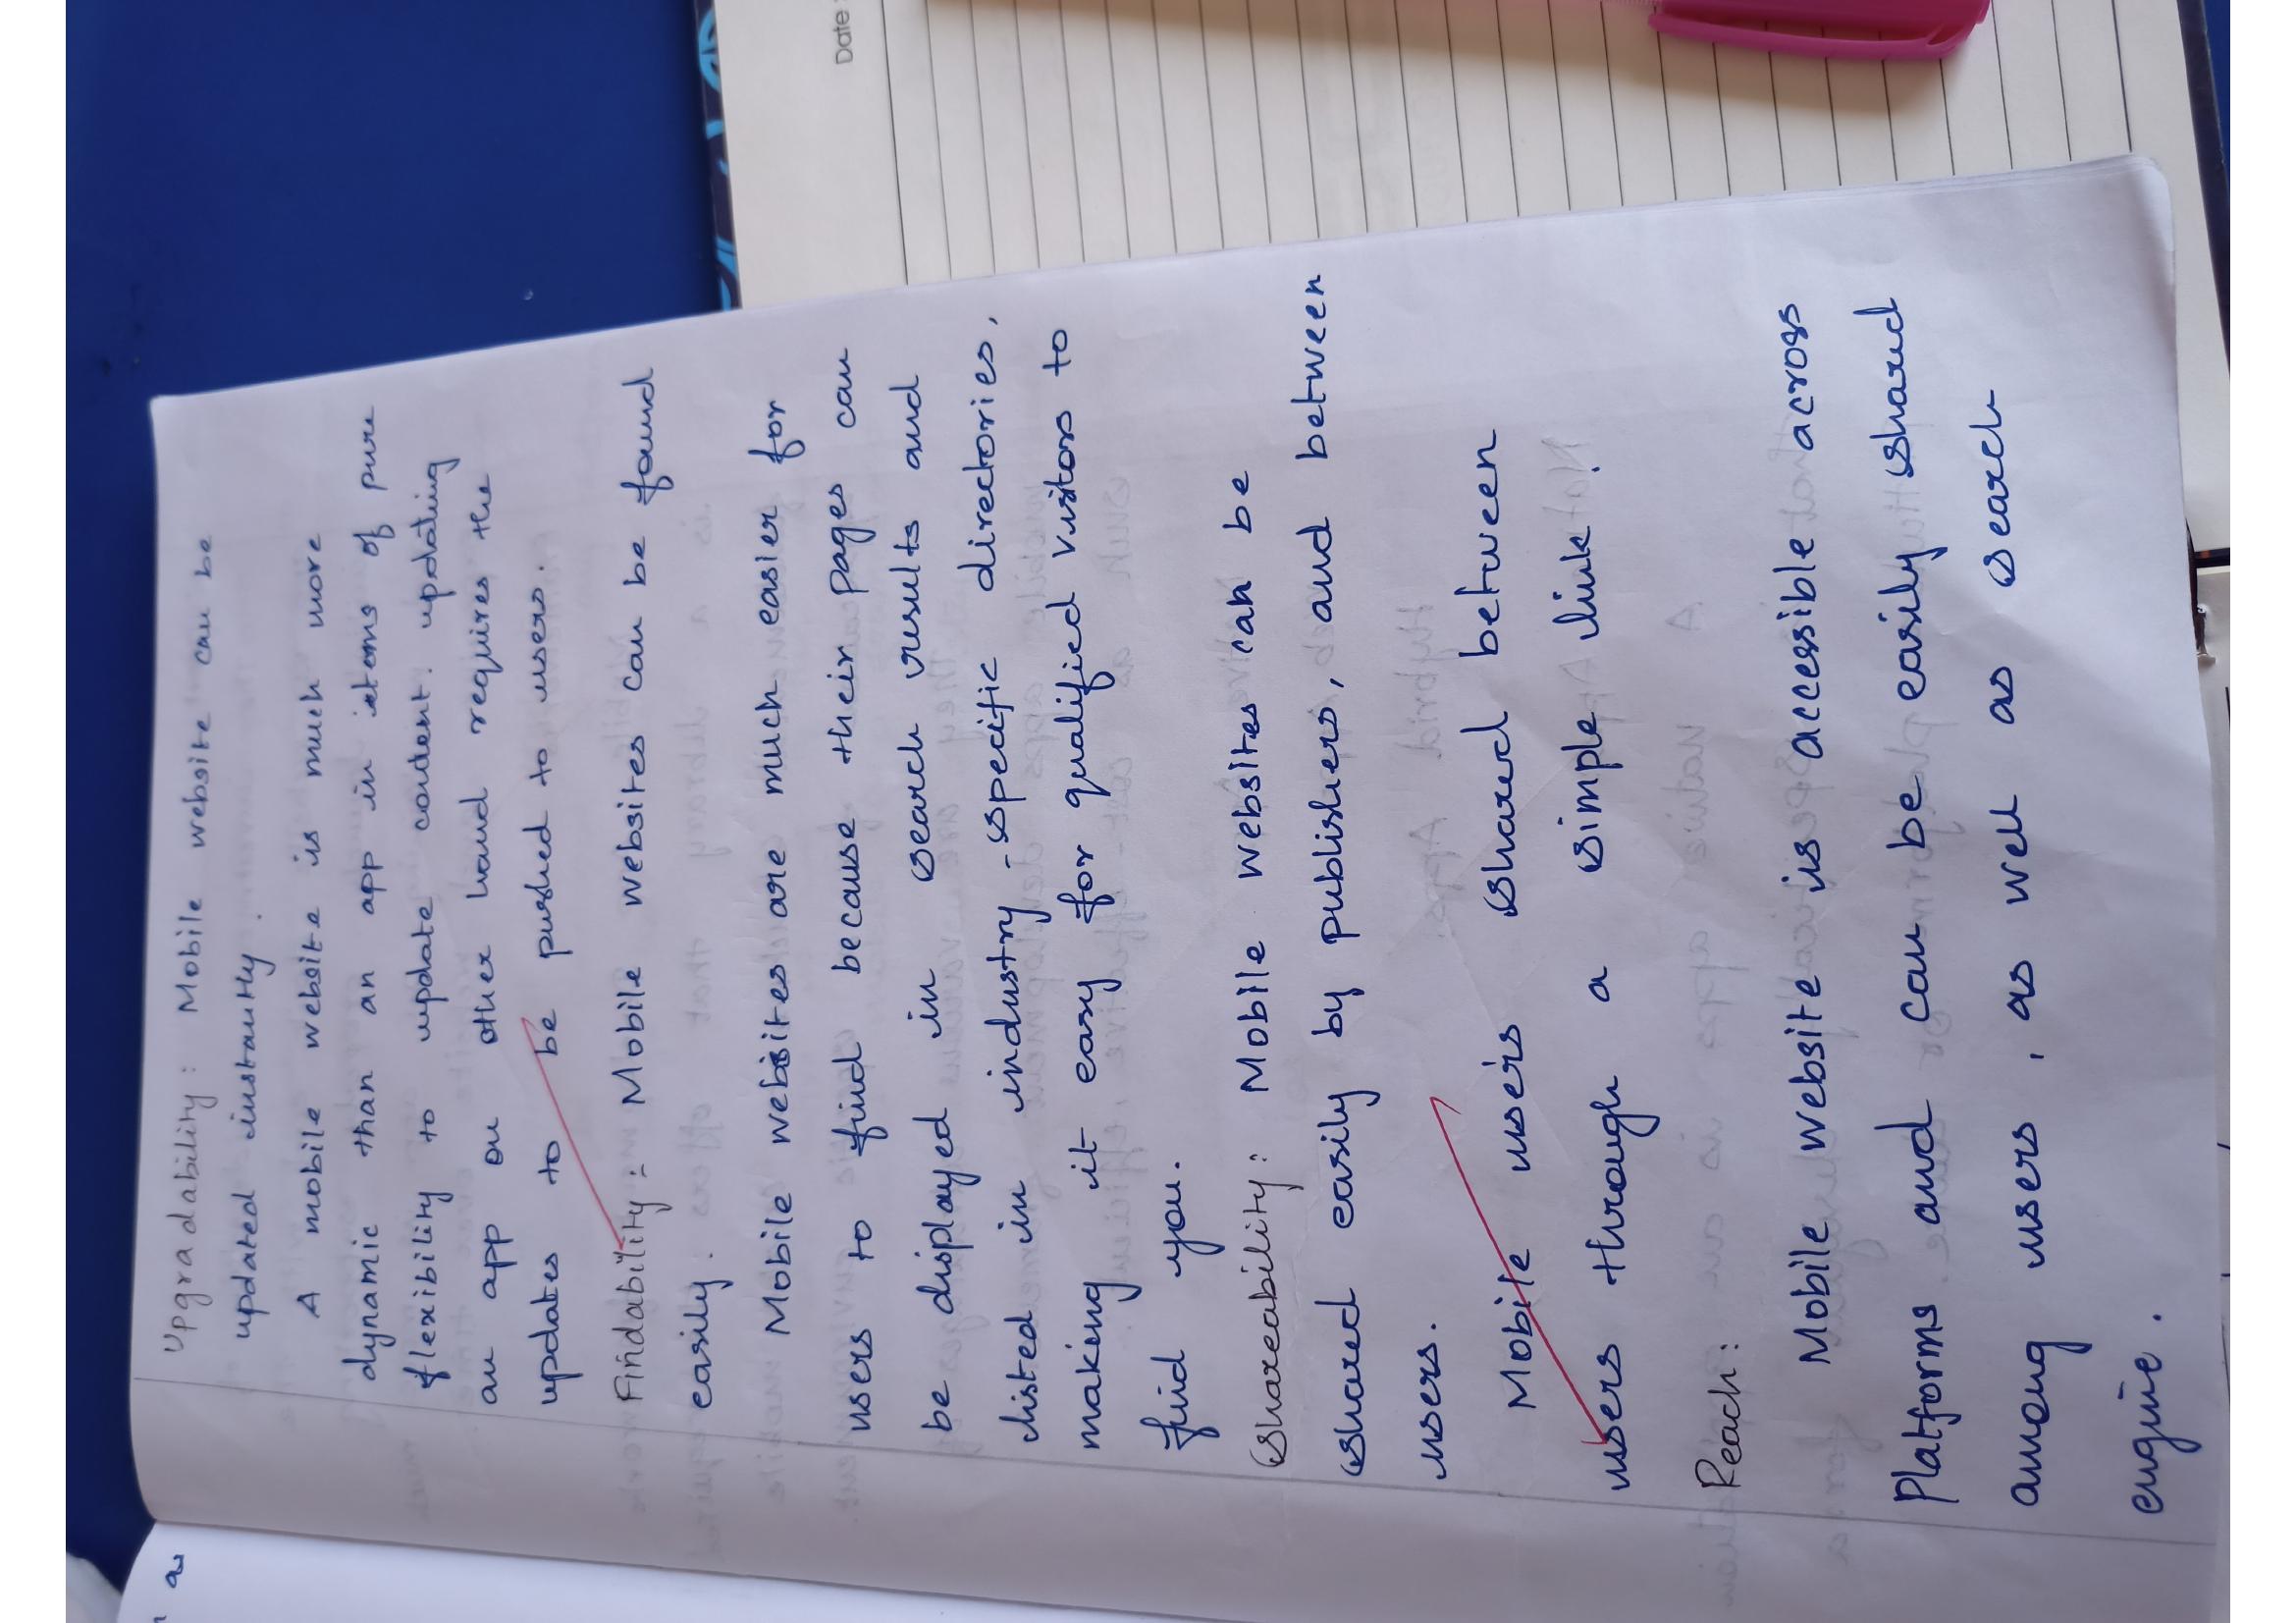 Upgradability: Mobile website can be
updated instantly.
A mobile website is much more
dynamic than an app in items of pure
flexibility to update content. updating
an app on other hand requires the
updates to be pushed to users.
Findability: Mobile websites can be found
easily.
Mobile websites are much easier for
users to find because their pages can
be displayed in search results and
listed in industry-specific directories,
making it easy for qualified visitors to
find you.
Shareability: Mobile websites can be
shared easily by publishers, and between
users.
Mobile users shared between
users through a simple link.
Reach:
Mobile website is accessible across
Platforms and can be easily shared
among users, as well as search
engine.
Date